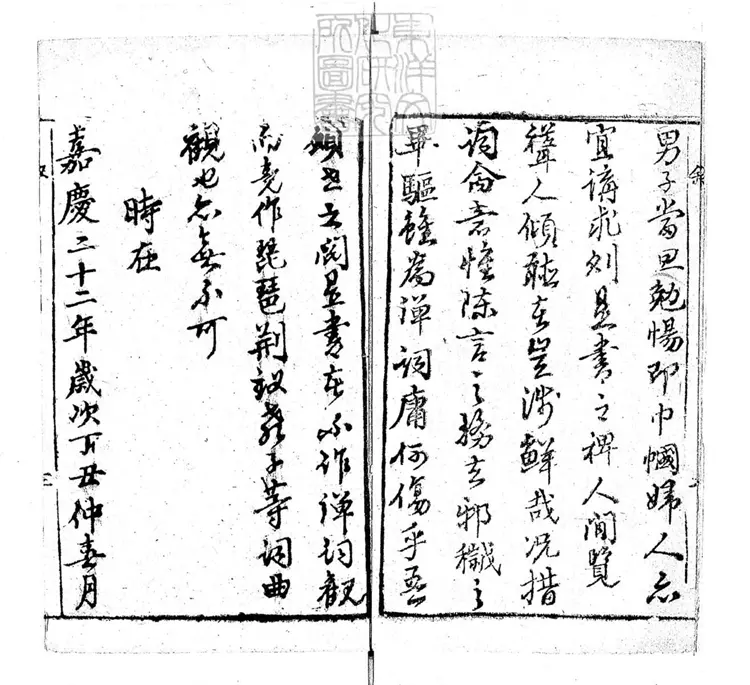 東洋文
化研究
所圖書
叙
男子當思勉惕即巾幗婦人亦
宜講求則是書之裨人間覽
聳人傾聽者豈淺鮮哉况措
詞命意惟陳言之務去邪穢之
畢驅雖為彈詞庸何傷乎吾
願世之閱是書者不作彈詞觀
而竟作琵琶荆釵等詞曲
觀也亦無不可
時在
嘉慶二十二年歲次丁丑仲春月